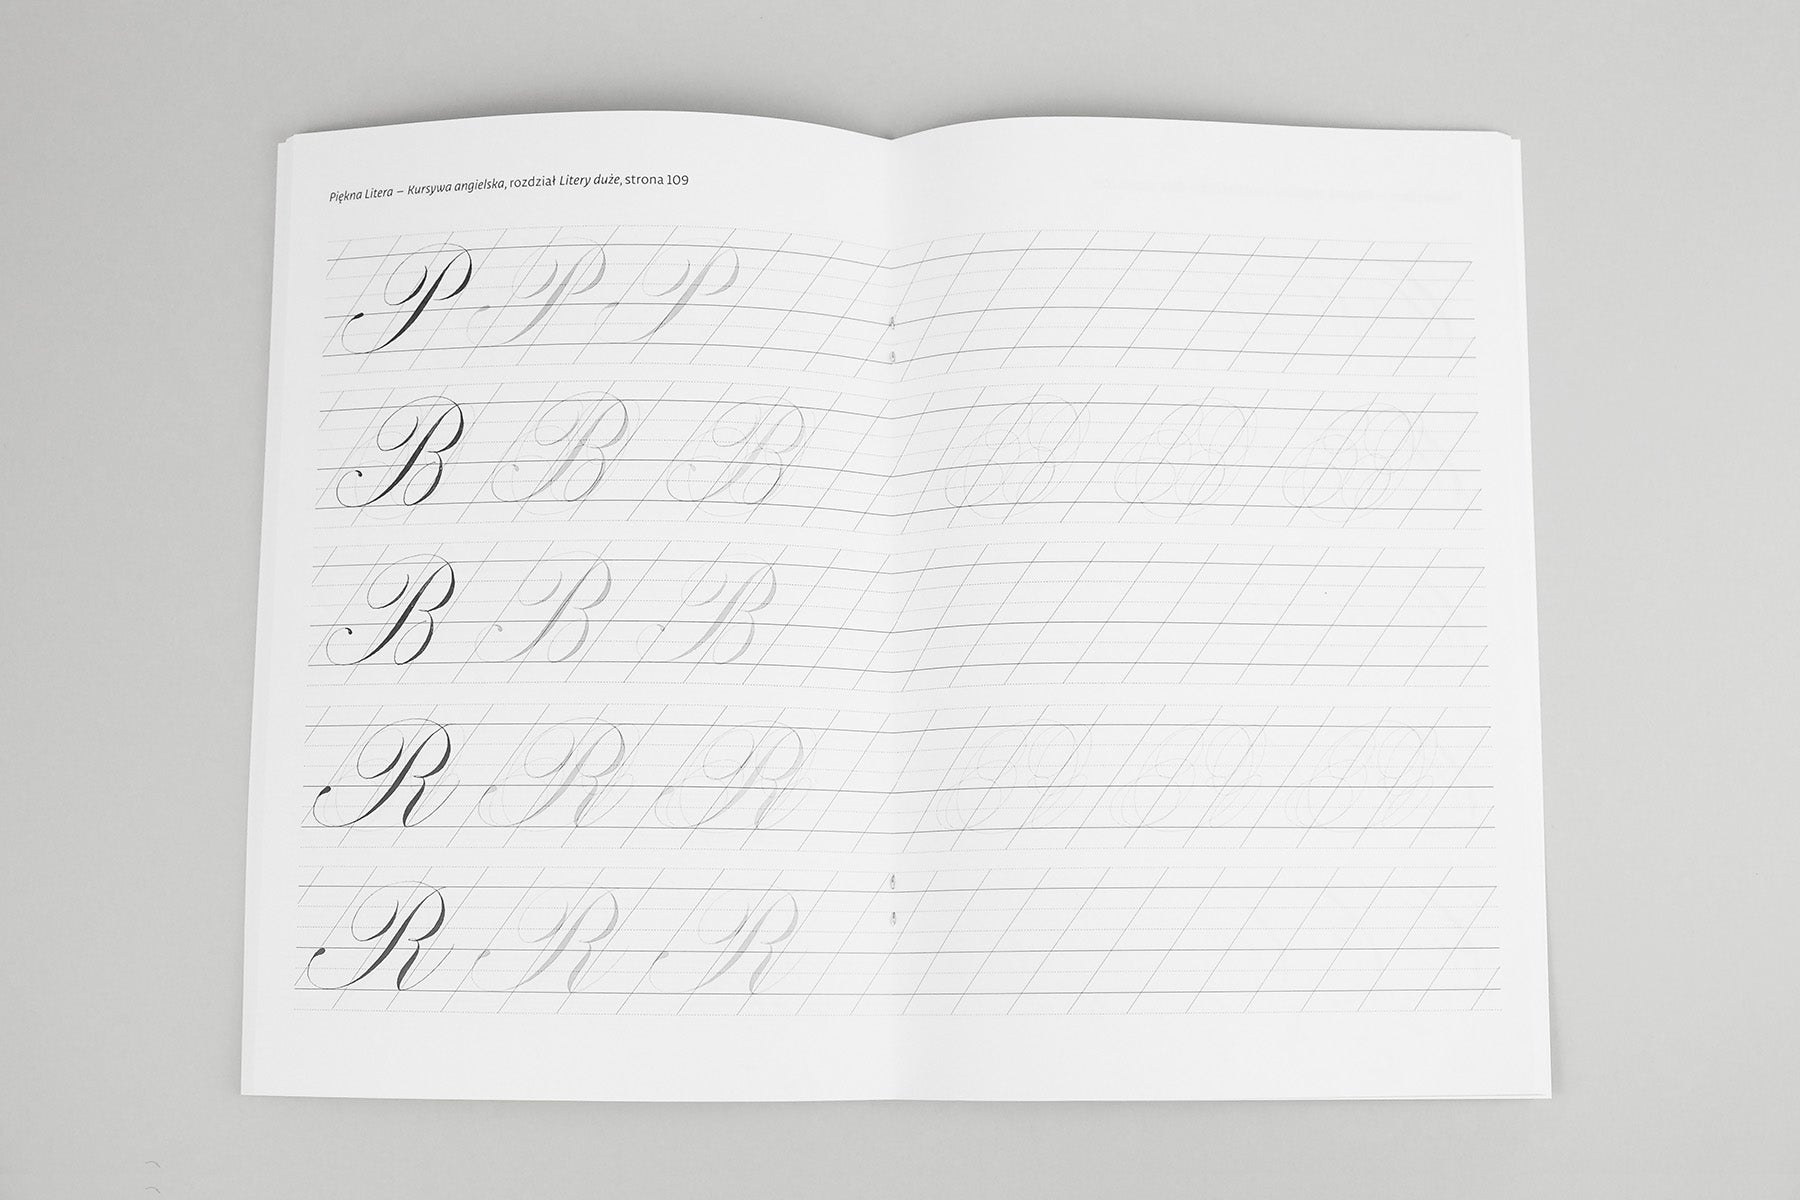 Piękna Litera – Kursywa angielska, rozdział Litery duże, strona 109
P P P
B B B
B B B
R R R
R R R